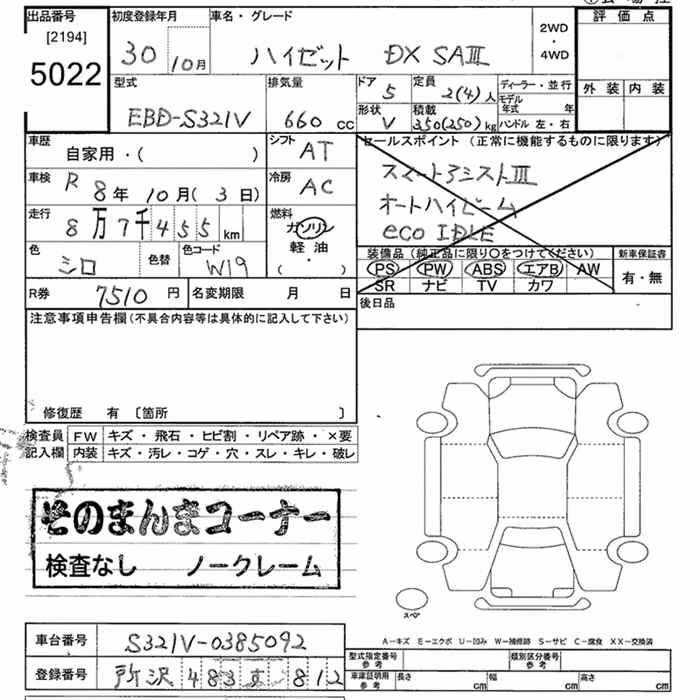 出品番号
[2194]
5022
初度登録年月
30 10月
車名・グレード
ハイゼット DX SAⅢ
2WD
・
4WD
評価点
外装 内装
型式
EBD-S321V
排気量
660 cc
ドア
5
定員
2(4)人
形状
V
積載
350(250)kg
ディーラー・並行
モデル年式 年
ハンドル 左・右
車歴
自家用・( )
シフト
AT
車検
R 8年 10月( 3日)
冷房
AC
走行
8万7千455km
燃料
ガソリン
軽油
( ・ )
色
シロ
色替
色コード
W19
セールスポイント (正常に機能するものに限ります)
スマートアシストⅢ
オートハイビーム
eco IDLE
装備品(純正品に限り○をつけてください)
PS PW ABS エアB AW
SR ナビ TV カワ
新車保証書
有・無
R券
7510円
名変期限 月 日
後日品
注意事項申告欄(不具合内容等は具体的に記入して下さい)
修復歴 有 〔箇所 〕
検査員記入欄
FW キズ・飛石・ヒビ割・リペア跡・×要
内装 キズ・汚レ・コゲ・穴・スレ・キレ・破レ
そのまんまコーナー
検査なし ノークレーム
スペア
A−キズ E−エクボ U−凹み W−補修跡 S−サビ C−腐食 XX−交換済
車台番号
S321V-0385092
登録番号
所沢 483 812
型式指定番号 参考
類別区分番号 参考
車庫証明用 参考
長さ cm 幅 cm 高さ cm